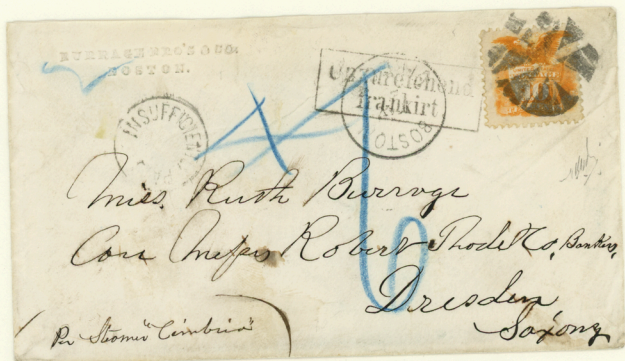 BURRAGE BRO'S & CO.
BOSTON.
Unzureichend
frankirt
INSUFFICIENTLY
BOSTON
Miss. Ruth Burrage
Care Messrs Robert Thode & Co, Bankers,
Dresden
Saxony
Per Steamer "Cimbria"
6